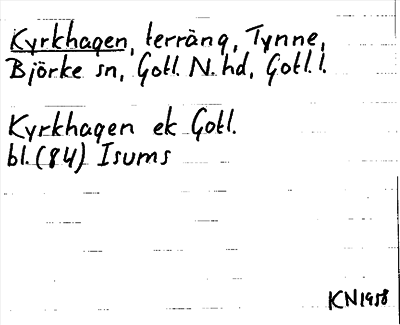 Kyrkhagen, terräng, Tynne,
Björke sn, Gotl. N. hd, Gotl. l.
Kyrkhagen ek Gotl.
bl. (84) Isums
KN1958